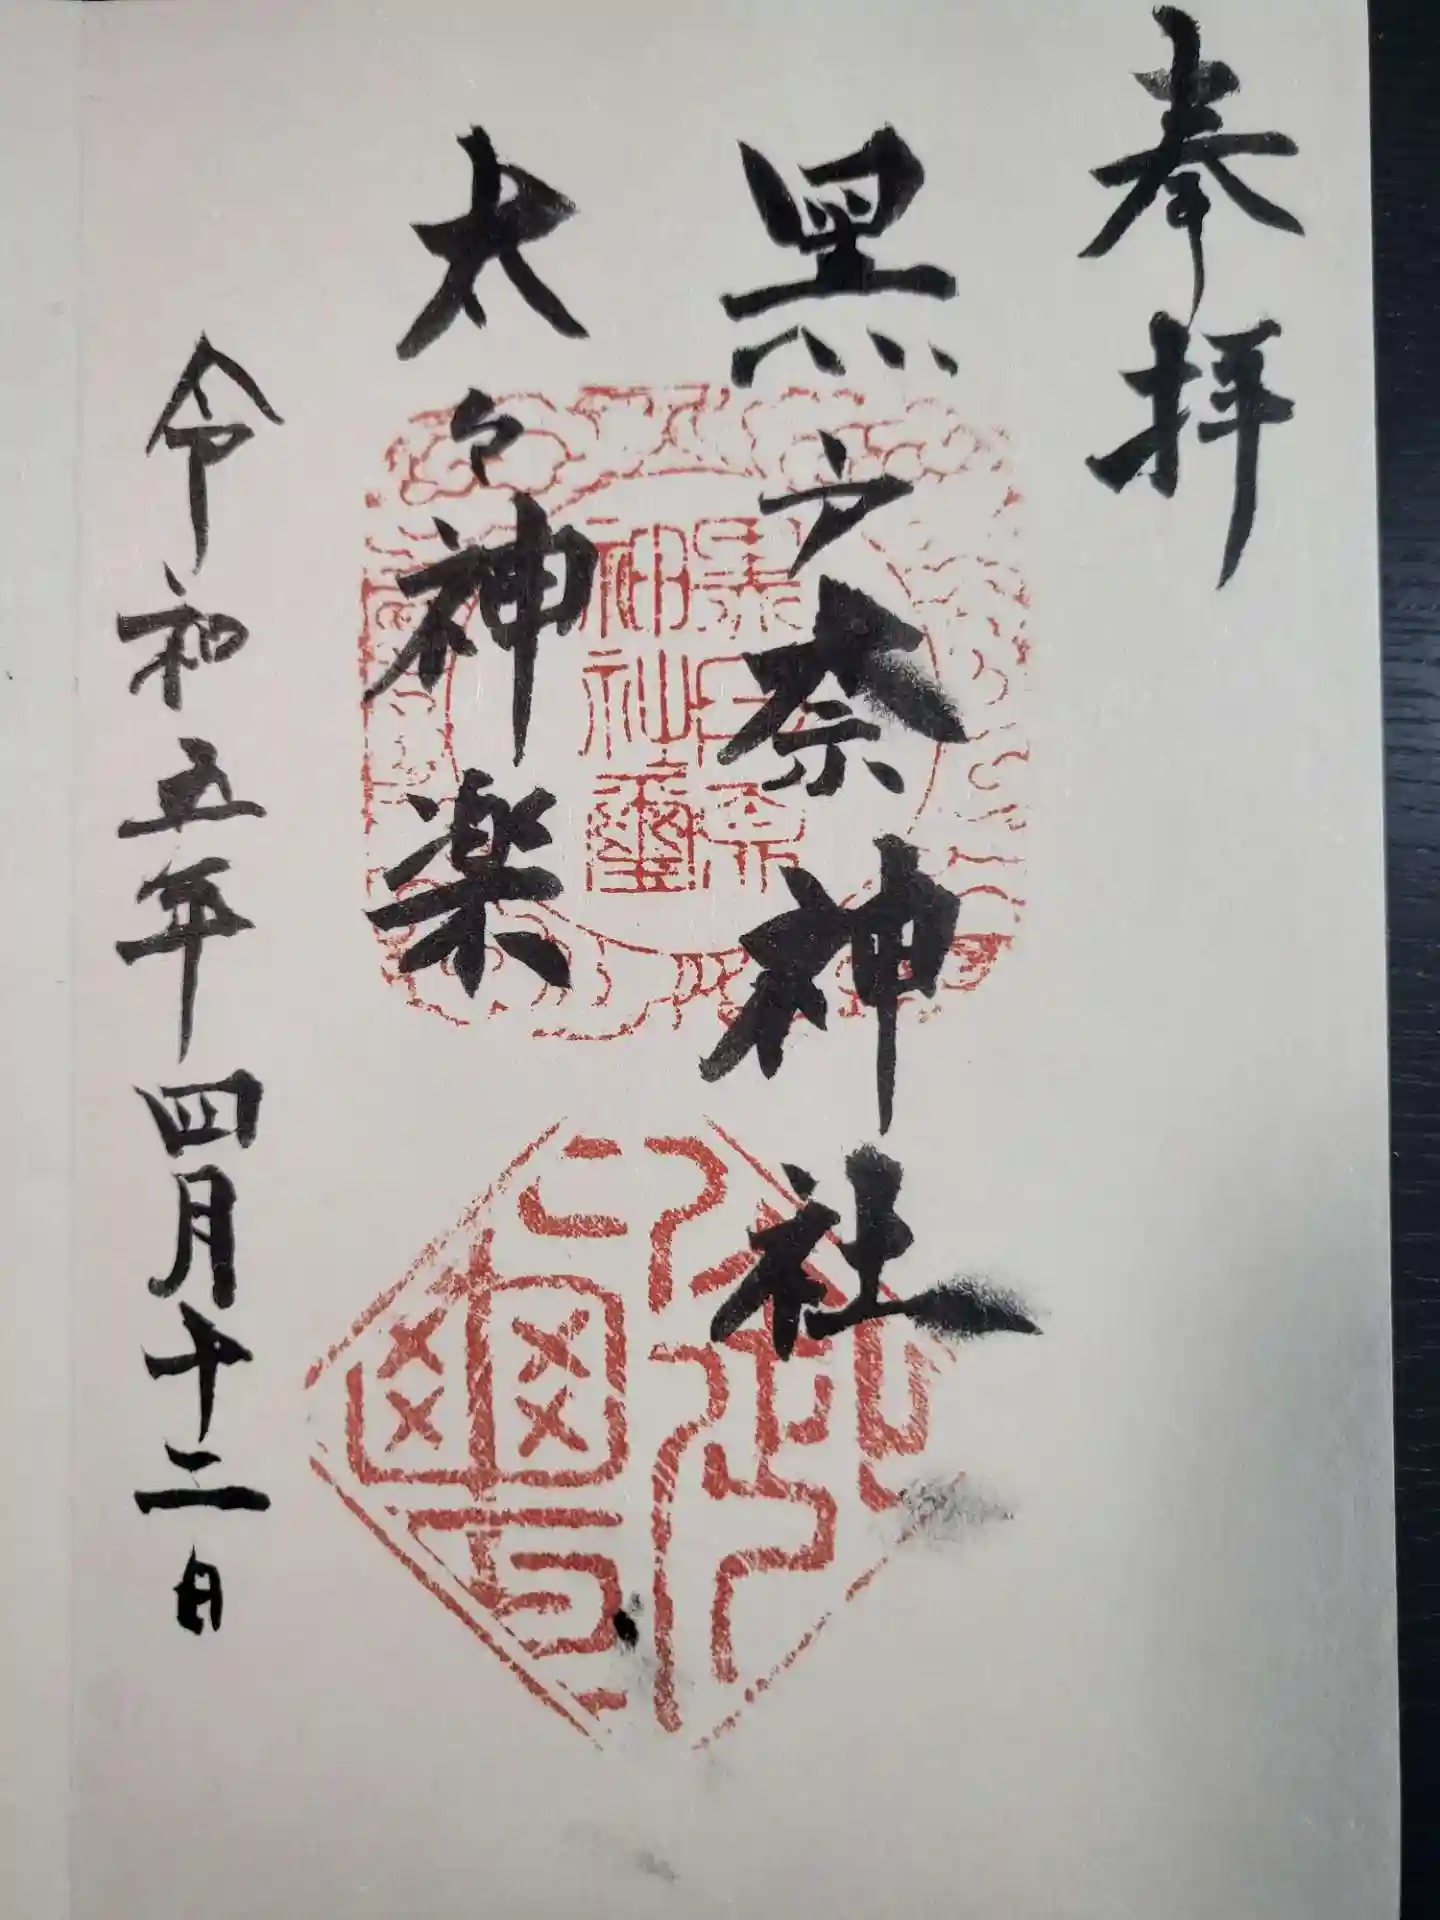 奉拝
黒戸奈神社
太々神楽
令和五年四月十二日
黒戸奈
神社璽